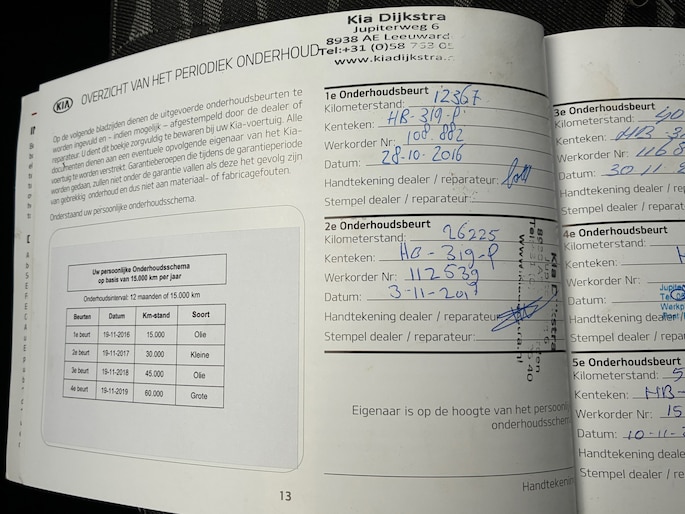 KIA OVERZICHT VAN HET PERIODIEK ONDERHOUD
Op de volgende bladzijden dienen de uitgevoerde onderhoudsbeurten te
worden ingevuld en - indien mogelijk - afgestempeld door de dealer of
reparateur. U dient dit boekje zorgvuldig te bewaren bij uw Kia-voertuig. Alle
documenten dienen aan een eventuele opvolgende eigenaar van het Kia-
voertuig te worden verstrekt. Garantieberoepen die tijdens de garantieperiode
worden gedaan, zullen niet onder de garantie vallen als deze het gevolg zijn
van gebrekkig onderhoud en dus niet aan materiaal- of fabricagefouten.
Onderstaand uw persoonlijke onderhoudsschema.
Uw persoonlijke Onderhoudsschema
op basis van 15.000 km per jaar
Onderhoudsinterval: 12 maanden of 15.000 km
Beurten Datum Km-stand Soort
1e beurt 19-11-2016 15.000 Olie
2e beurt 19-11-2017 30.000 Kleine
3e beurt 19-11-2018 45.000 Olie
4e beurt 19-11-2019 60.000 Grote
13
Kia Dijkstra
Jupiterweg 6
8938 AE Leeuward
Tel:+31 (0)58
www.kiadijkstra.
1e Onderhoudsbeurt
Kilometerstand: 12367
Kenteken: HB-319-P
Werkorder Nr: 108.882
Datum: 28-10-2016
Handtekening dealer / reparateur:
Stempel dealer / reparateur:
2e Onderhoudsbeurt
Kilometerstand: 26225
Kenteken: HB-319-P
Werkorder Nr: 112539
Datum: 3-11-2017
Handtekening dealer / reparateur
Stempel dealer / reparateur:
Kia Dijkstra
Eigenaar is op de hoogte van het persoonl
onderhoudsschem
Handtekenin
3e Onderhoudsbeurt
Kilometerstand:
Kenteken: HB
Werkorder Nr: 1168
Datum: 30-11
Handtekening dealer / repar
Stempel dealer / reparat
4e Onderhoudsbeurt
Kilometerstand:
Kenteken:
Werkorder Nr:
Datum:
Handtekening dealer
Stempel dealer / reparat
5e Onderhoudsbeurt
Kilometerstand: 5
Kenteken: HB-
Werkorder Nr: 15
Datum: 10-11-2
Handtekening deale
Stempel dealer / re